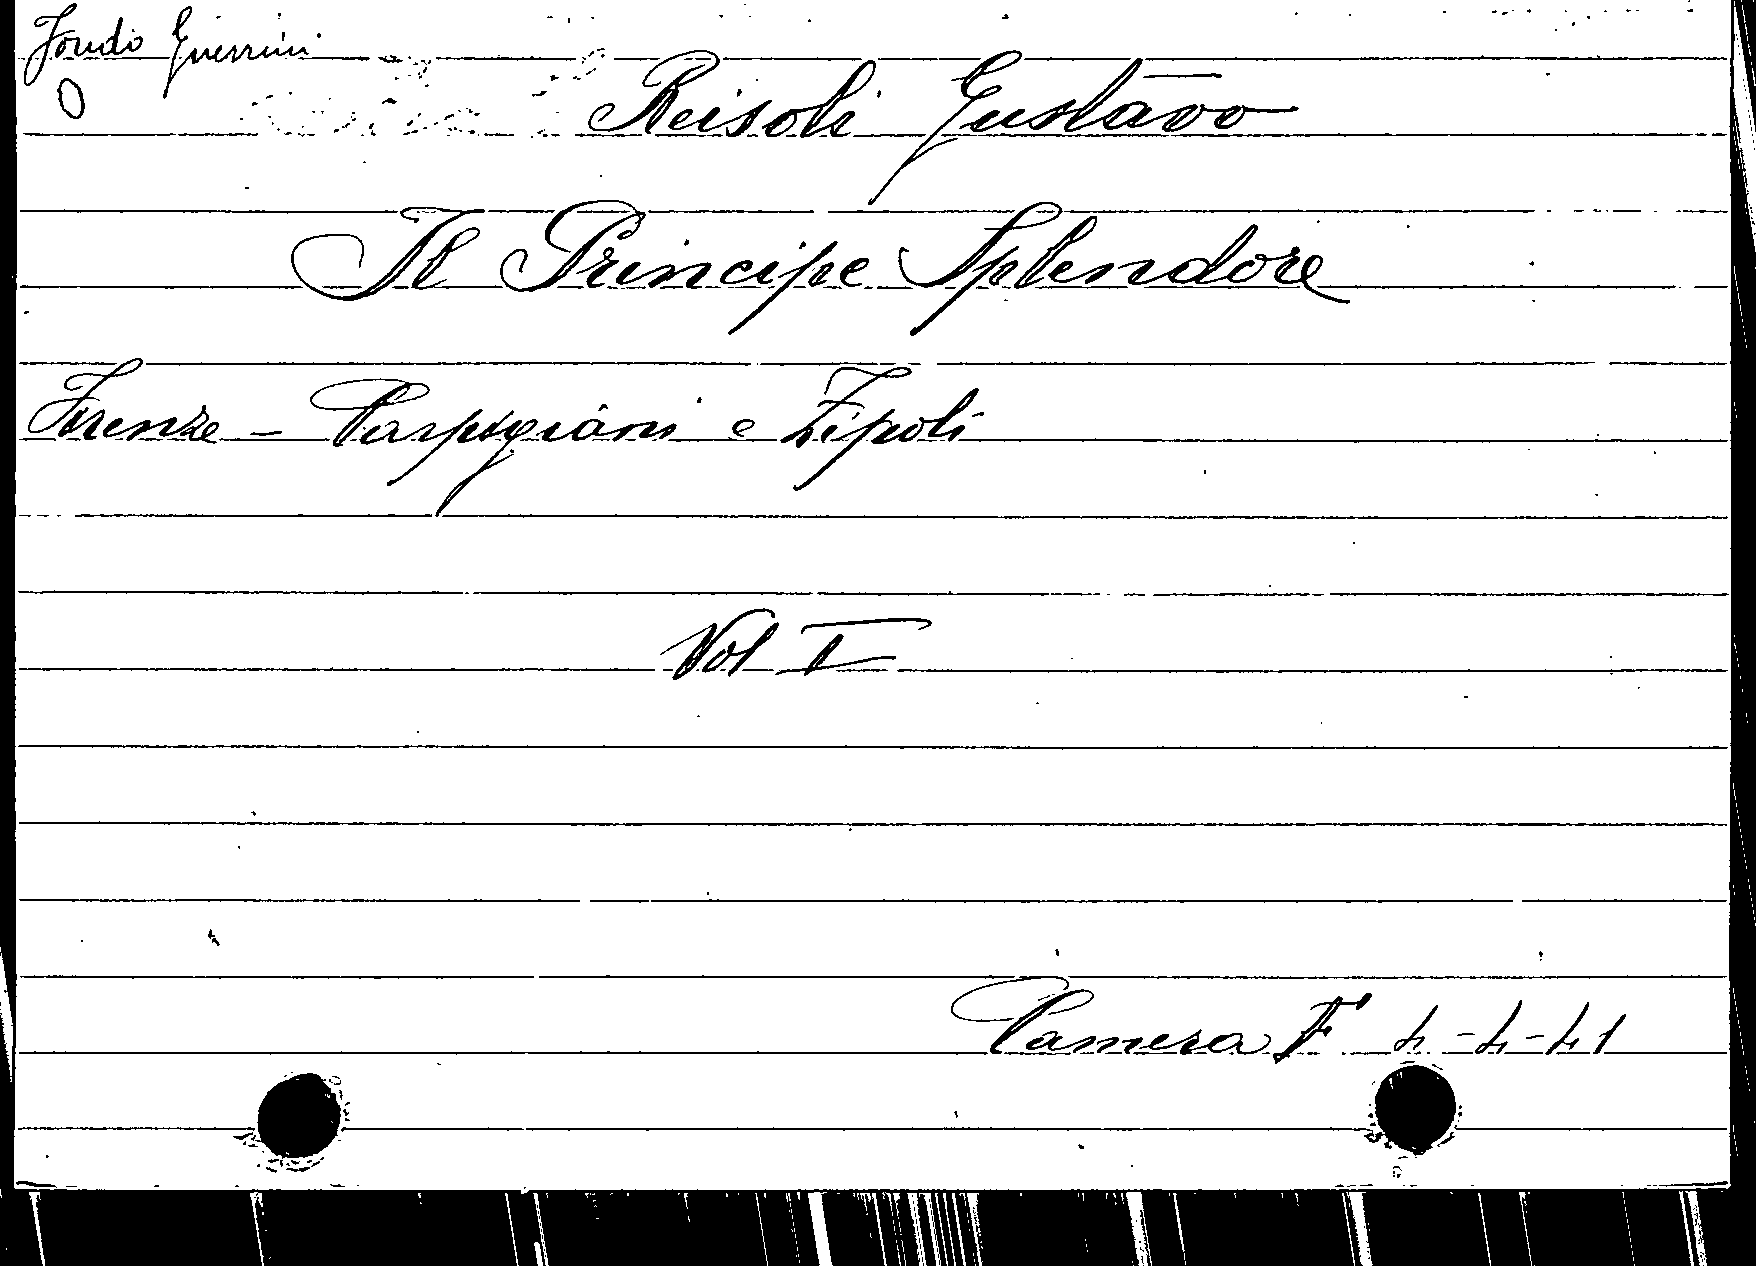 Fondo Guerrini
O
Reisoli Gustavo
Il Principe Splendore
Firenze - Carpigiani e Zipoli
Vol I
Camera F 4-4-41